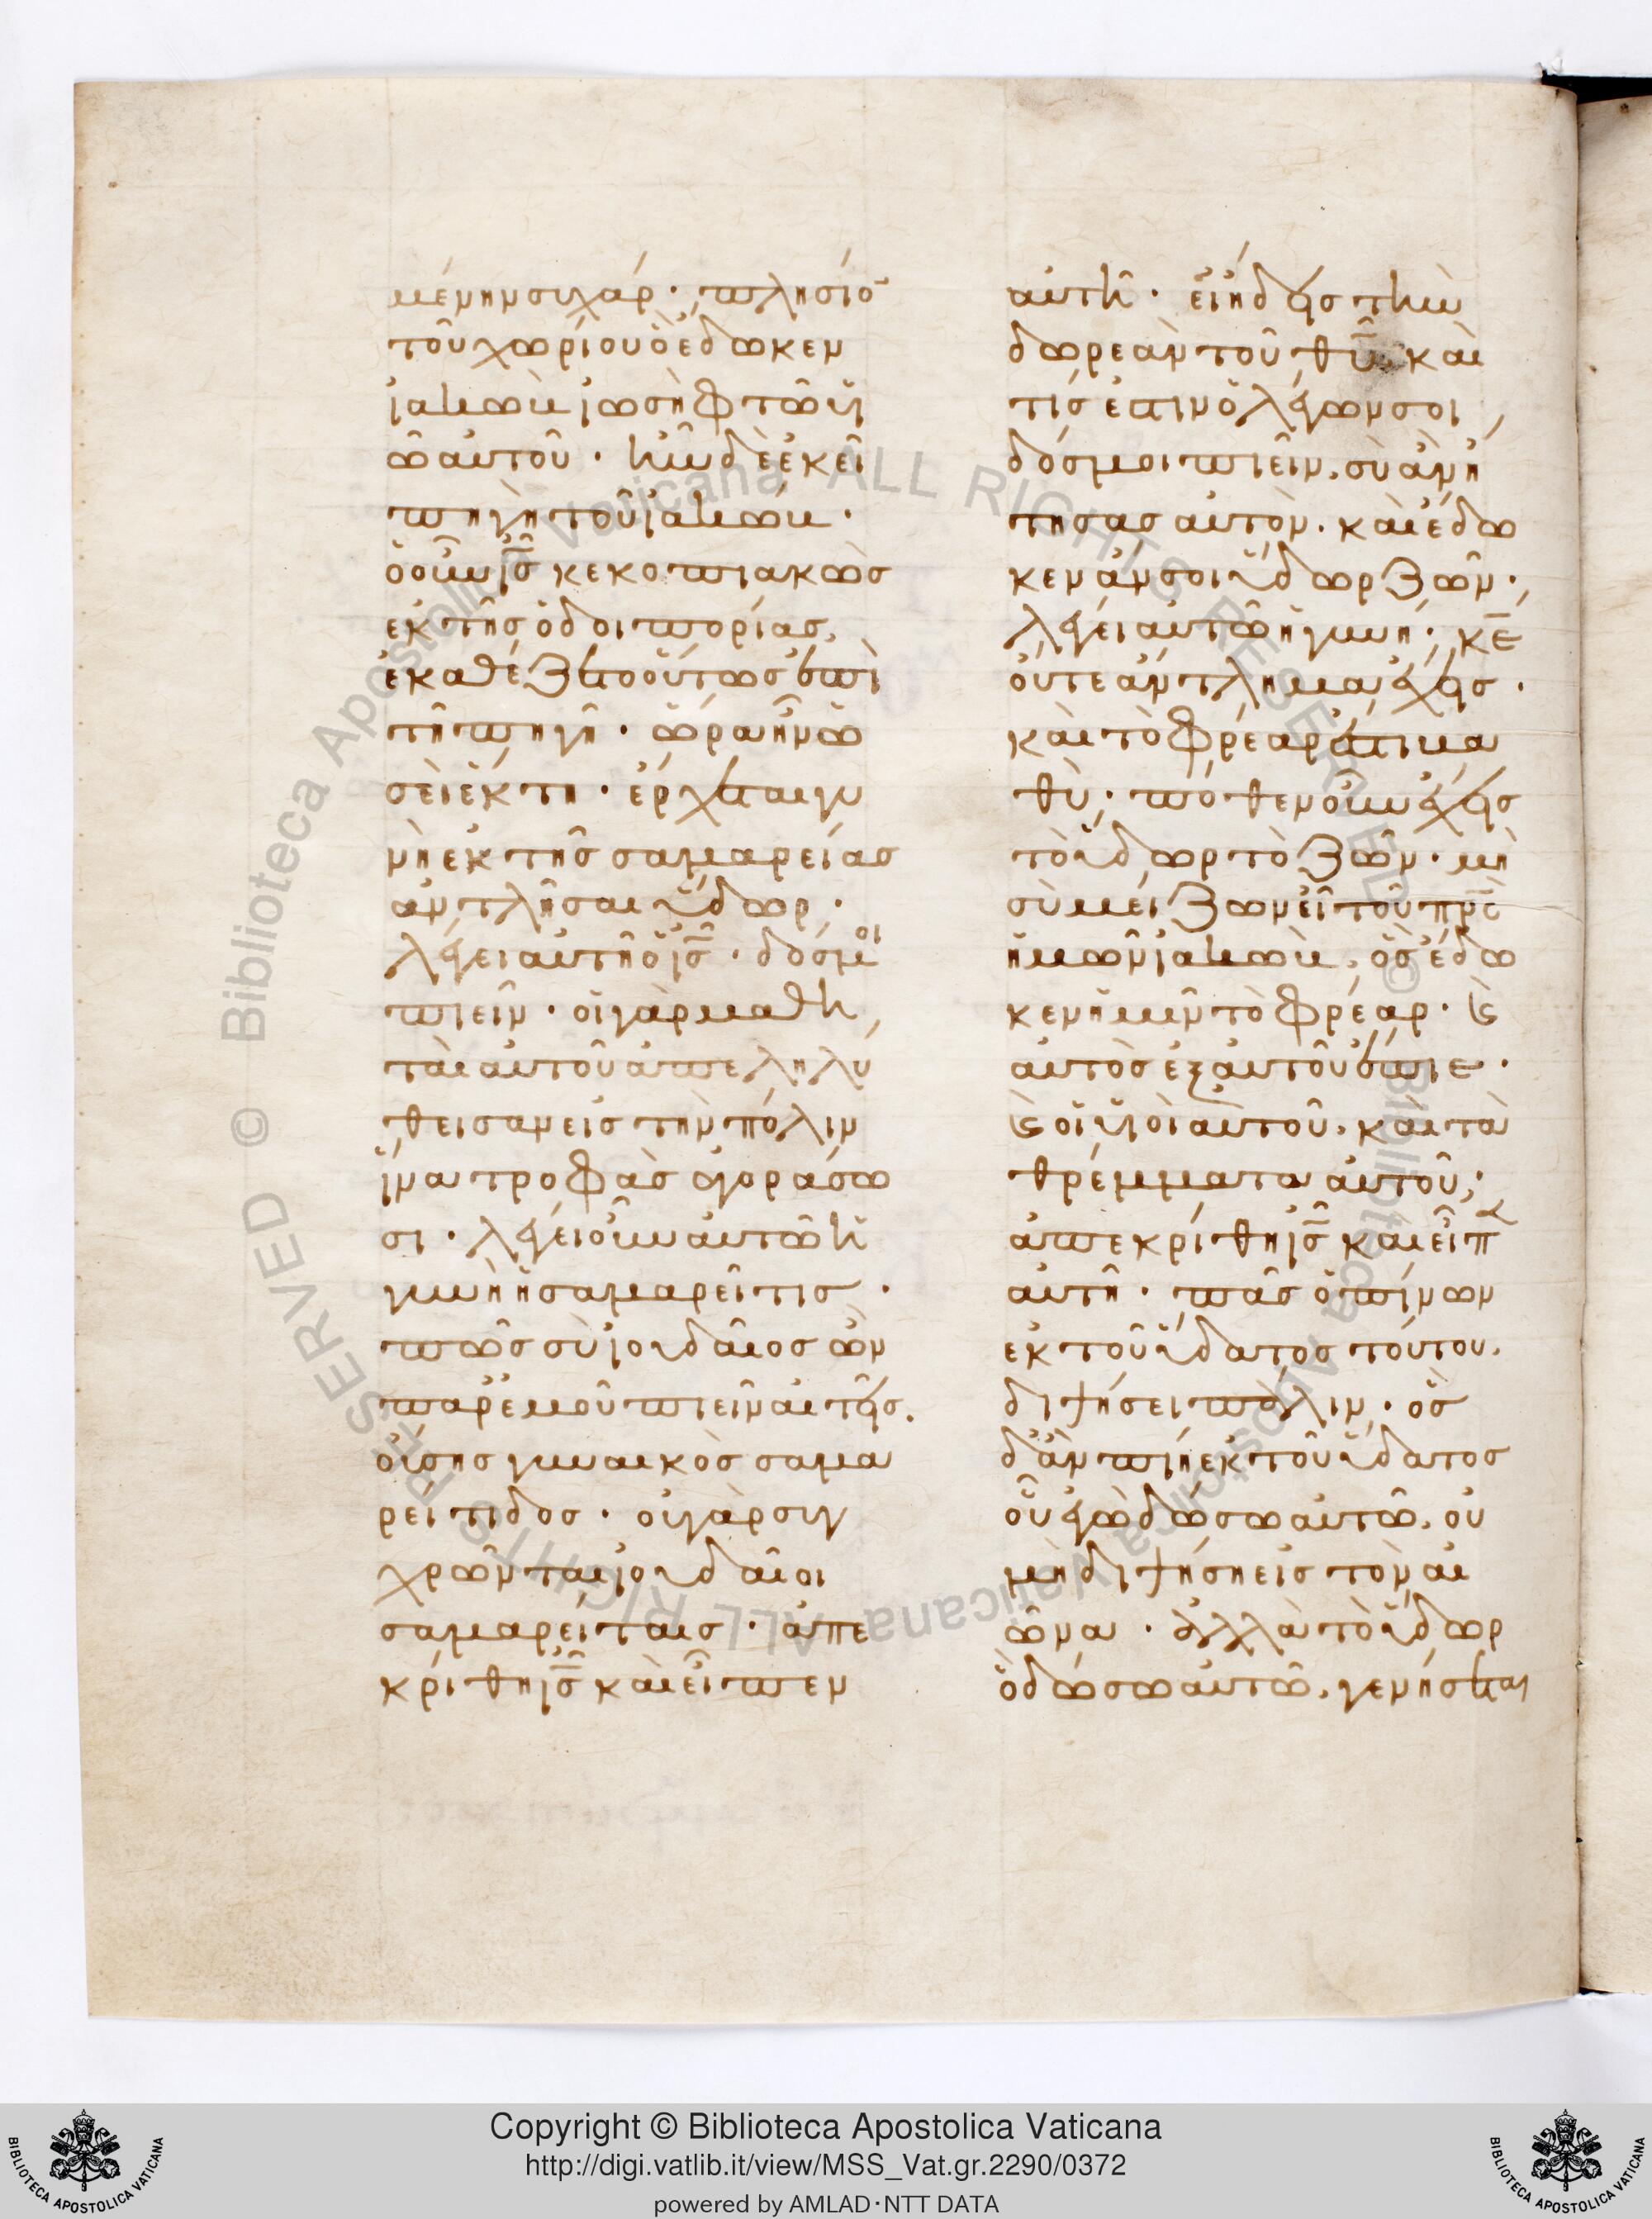 μένην σιχάρ· πλησίο̄
τοῦ χωρίου ὃ ἔδωκεν
ἰακὼβ ἰωσὴφ τῶ υἱ
ῶ αὐτοῦ· ἦν δὲ ἐκεῖ
πηγὴ τοῦ ἰακώβ·
ὁ οὖν ἰ̅ς̅ κεκοπιακὼς
ἐκ τῆς ὁδοιπορίας,
ἐκαθέζετο οὕτως ἐπὶ
τῆ πηγῆ· ὥρα ἦν ὡ
σεὶ ἕκτη· ἔρχεται γυ
νὴ ἐκ τῆς σαμαρείας
ἀντλῆσαι ὕδωρ·
λέγει αὐτῆ ὁ ἰ̅ς̅· δός μοι
πιεῖν· οἱ γὰρ μαθη
ταὶ αὐτοῦ ἀπεληλύ
θεισαν εἰς τὴν πόλιν
ἵνα τροφὰς ἀγοράσω
σι· λέγει οὖν αὐτῶ ἡ
γυνὴ ἡ σαμαρεῖτις·
πῶς σὺ ἰουδαῖος ὢν
παρ' ἐμοῦ πιεῖν αἰτεῖς.
οὔσης γυναικὸς σαμα
ρείτιδος· οὐ γὰρ συγ
χρῶνται ἰουδαῖοι
σαμαρείταις· ἀπε
κρίθη ἰ̅ς̅ καὶ εἶπεν
αὐτῆ· εἰ ἤδεις τὴν
δωρεὰν τοῦ θ̅υ̅ καὶ
τίς ἐστιν ὁ λέγων σοι
δός μοι πιεῖν, σὺ ἂν ἤ
τησας αὐτὸν. καὶ ἔδω
κεν ἄν σοι ὕδωρ ζῶν·
λέγει αὐτῶ ἡ γυνή· κ̅ε̅
οὔτε ἄντλημα ἔχεις·
καὶ τὸ φρέαρ ἐστι βα
θύ· πόθεν οὖν ἔχεις
τὸ ὕδωρ τὸ ζῶν· μὴ
σὺ μείζων εἶ τοῦ π̅ρ̅ς̅
ἡμῶν ἰακὼβ, ὃς ἔδω
κεν ἡμῖν τὸ φρέαρ· ϗ
αὐτὸς ἐξ αὐτοῦ ἔπιε·
ϗ οἱ υἱοὶ αὐτοῦ, καὶ τὰ
θρέμματα αὐτοῦ·
ἀπεκρίθη ἰ̅ς̅ καὶ εἶπε
αὐτῆ· πᾶς ὁ πίνων
ἐκ τοῦ ὕδατος τούτου,
διψήσει πάλιν· ὃς
δ' ἂν πίη ἐκ τοῦ ὕδατος
οὗ ἐγὼ δώσω αὐτῶ, οὐ
μὴ διψήση εἰς τὸν αἰ
ῶνα· ἀλλὰ τὸ ὕδωρ
ὃ δώσω αὐτῶ, γενήσεται
Copyright © Biblioteca Apostolica Vaticana
http://digi.vatlib.it/view/MSS_Vat.gr.2290/0372
powered by AMLAD·NTT DATA
BIBLIOTECA APOSTOLICA VATICANA
BIBLIOTECA APOSTOLICA VATICANA
© Biblioteca Apostolica Vaticana ALL RIGHTS RESERVED
© Biblioteca Apostolica Vaticana ALL RIGHTS RESERVED